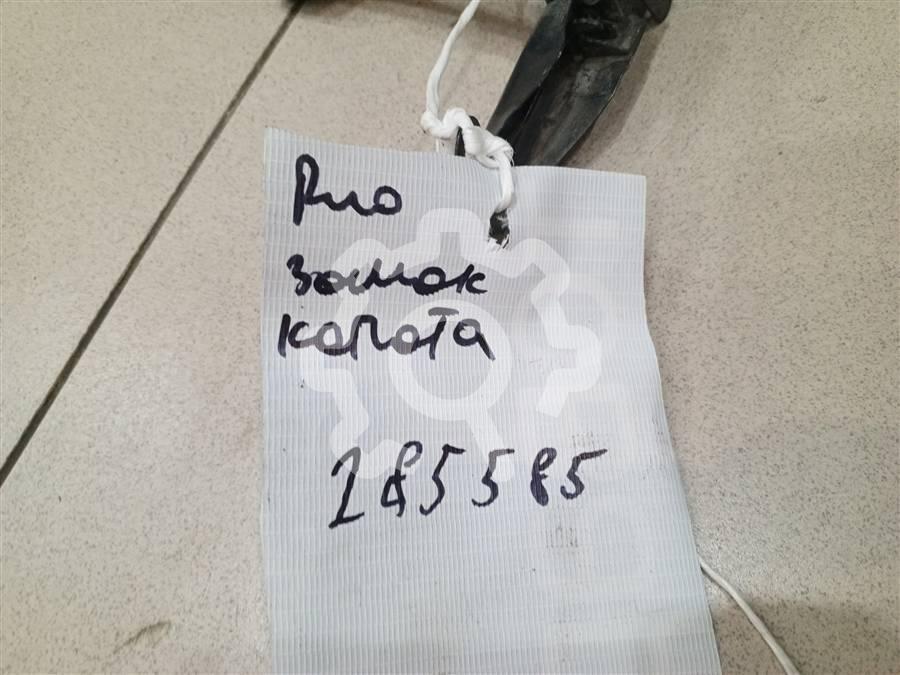 Рио
Замок
капота
285585